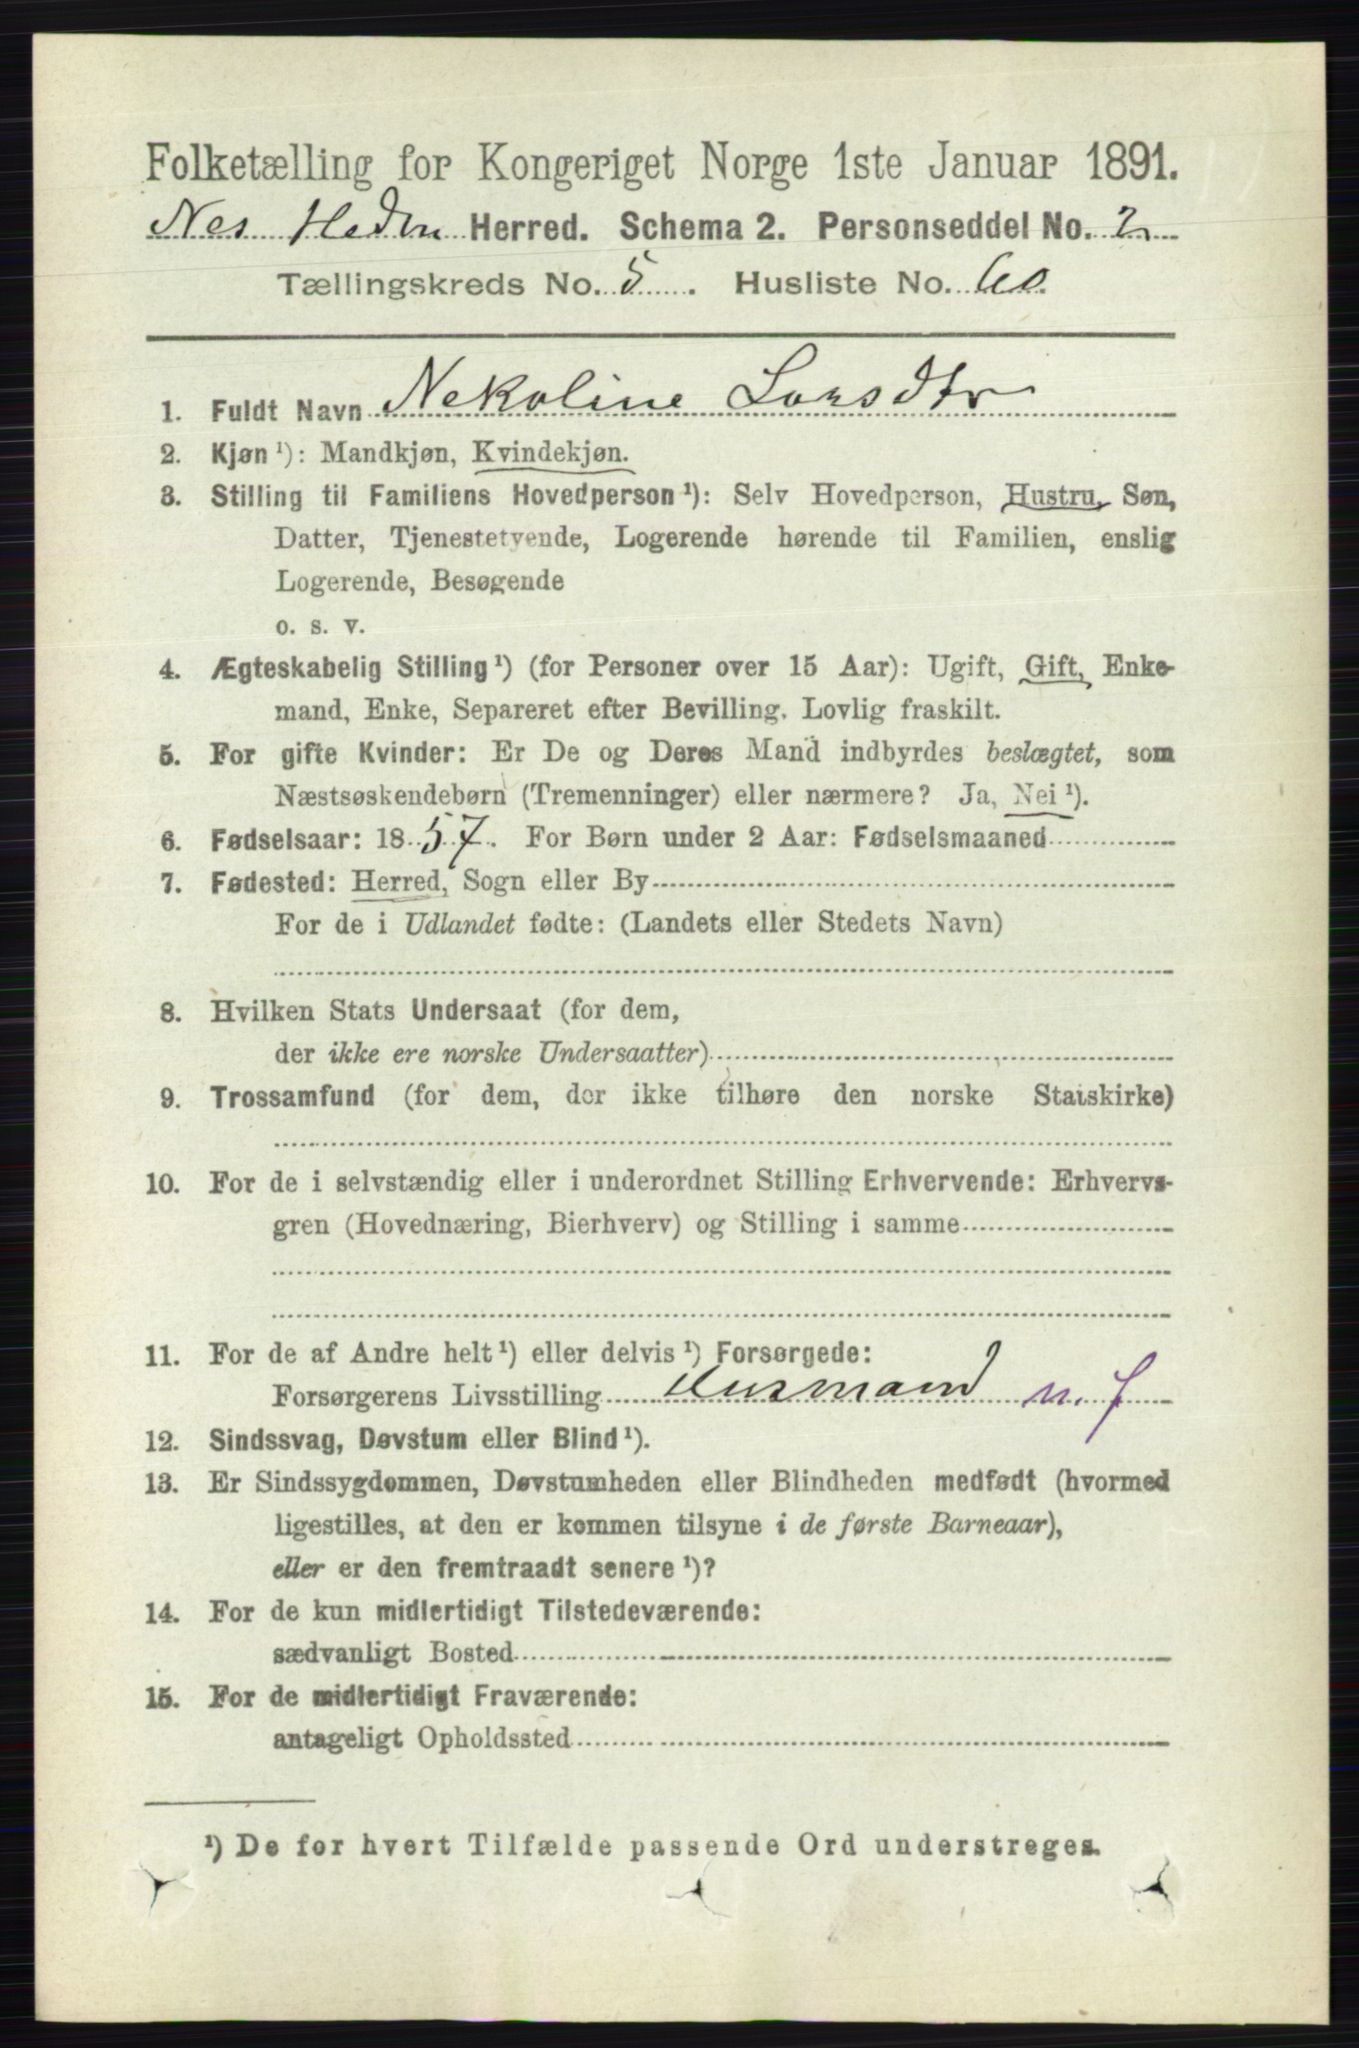 Folketælling for Kongeriget Norge 1ste Januar 1891.
Nes Hedm Herred. Schema 2. Personseddel No. 2
Tællingskreds No. 5. Husliste No. 60
1. Fuldt Navn Nekoline Larsdtr
2. Kjøn ¹): Mandkjøn, Kvindekjøn.
3. Stilling til Familiens Hovedperson ¹): Selv Hovedperson, Hustru, Søn,
Datter, Tjenestetyende, Logerende hørende til Familien, enslig
Logerende, Besøgende
o. s. v.
4. Ægteskabelig Stilling ¹) (for Personer over 15 Aar): Ugift, Gift, Enke-
mand, Enke, Separeret efter Bevilling. Lovlig fraskilt.
5. For gifte Kvinder: Er De og Deres Mand indbyrdes beslægtet, som
Næstsøskendebørn (Tremenninger) eller nærmere? Ja, Nei ¹).
6. Fødselsaar: 1857. For Børn under 2 Aar: Fødselsmaaned
7. Fødested: Herred, Sogn eller By
For de i Udlandet fødte: (Landets eller Stedets Navn)
8. Hvilken Stats Undersaat (for dem,
der ikke ere norske Undersaatter)
9. Trossamfund (for dem, der ikke tilhøre den norske Statskirke)
10. For de i selvstændig eller i underordnet Stilling Erhvervende: Erhvervs-
gren (Hovednæring, Bierhverv) og Stilling i samme
11. For de af Andre helt ¹) eller delvis ¹) Forsørgede:
Forsørgerens Livsstilling Husmand m. J
12. Sindssvag, Døvstum eller Blind ¹).
13. Er Sindssygdommen, Døvstumheden eller Blindheden medfødt (hvormed
ligestilles, at den er kommen tilsyne i de første Barneaar),
eller er den fremtraadt senere ¹)?
14. For de kun midlertidigt Tilstedeværende:
sædvanligt Bosted
15. For de midlertidigt Fraværende:
antageligt Opholdssted
¹) De for hvert Tilfælde passende Ord understreges.